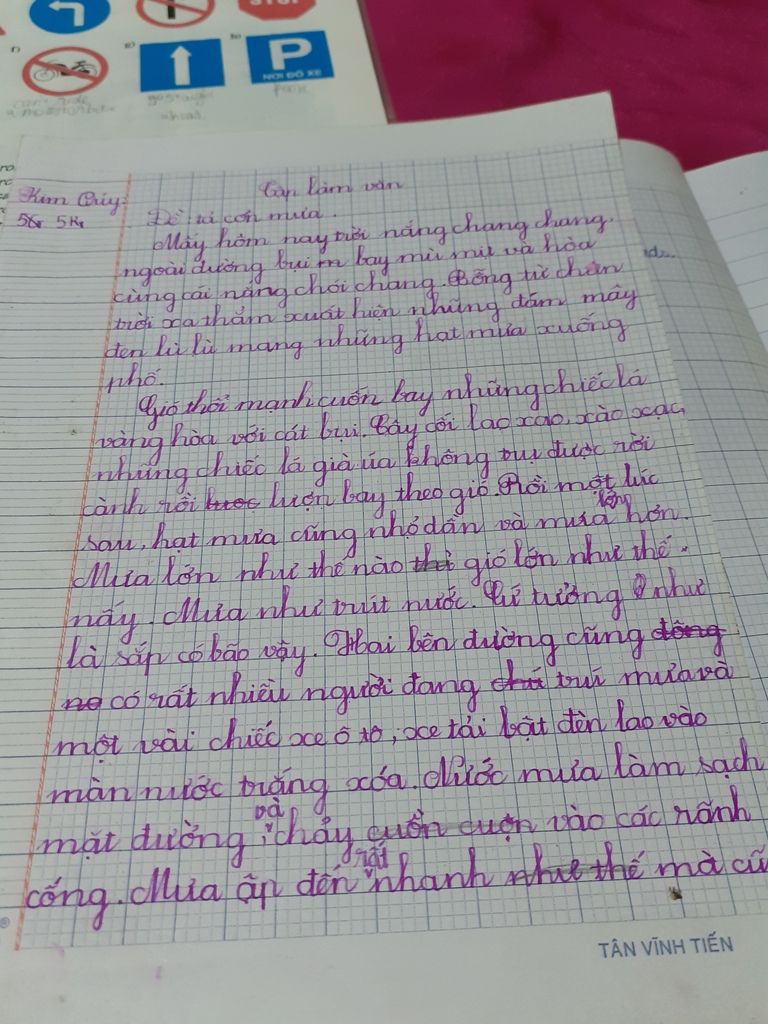 STOP
P
NƠI ĐỖ XE
go straight
ahead
park
Tập làm văn
Kim Thúy
Đề: tả cơn mưa.
Mấy hôm nay trời nắng chang chang.
ngoài đường bụi bay mù mịt và hòa
cùng cái nắng chói chang. Bỗng từ chân
trời xa thẳm xuất hiện những đám mây
đen lù lù mang những hạt mưa xuống
phố.
Gió thổi mạnh cuốn bay những chiếc lá
vàng hòa với cát bụi. Cây cối lao xao, xào xạc,
những chiếc lá già úa không trụ được rời
cành rồi lượn bay theo gió. Rồi một lúc
sau, hạt mưa cũng nhỏ dần và mưa lớn hơn.
Mưa lớn như thế nào thì gió lớn như thế
nấy. Mưa như trút nước. Cứ tưởng như
là sắp có bão vậy. Hai bên đường cũng
có rất nhiều người đang trú mưa và
một vài chiếc xe ô tô, xe tải bật đèn lao vào
màn nước trắng xóa. Nước mưa làm sạch
mặt đường và chảy cuồn cuộn vào các rãnh
cống. Mưa ập đến rất nhanh như thế mà cũ
TÂN VĨNH TIẾN